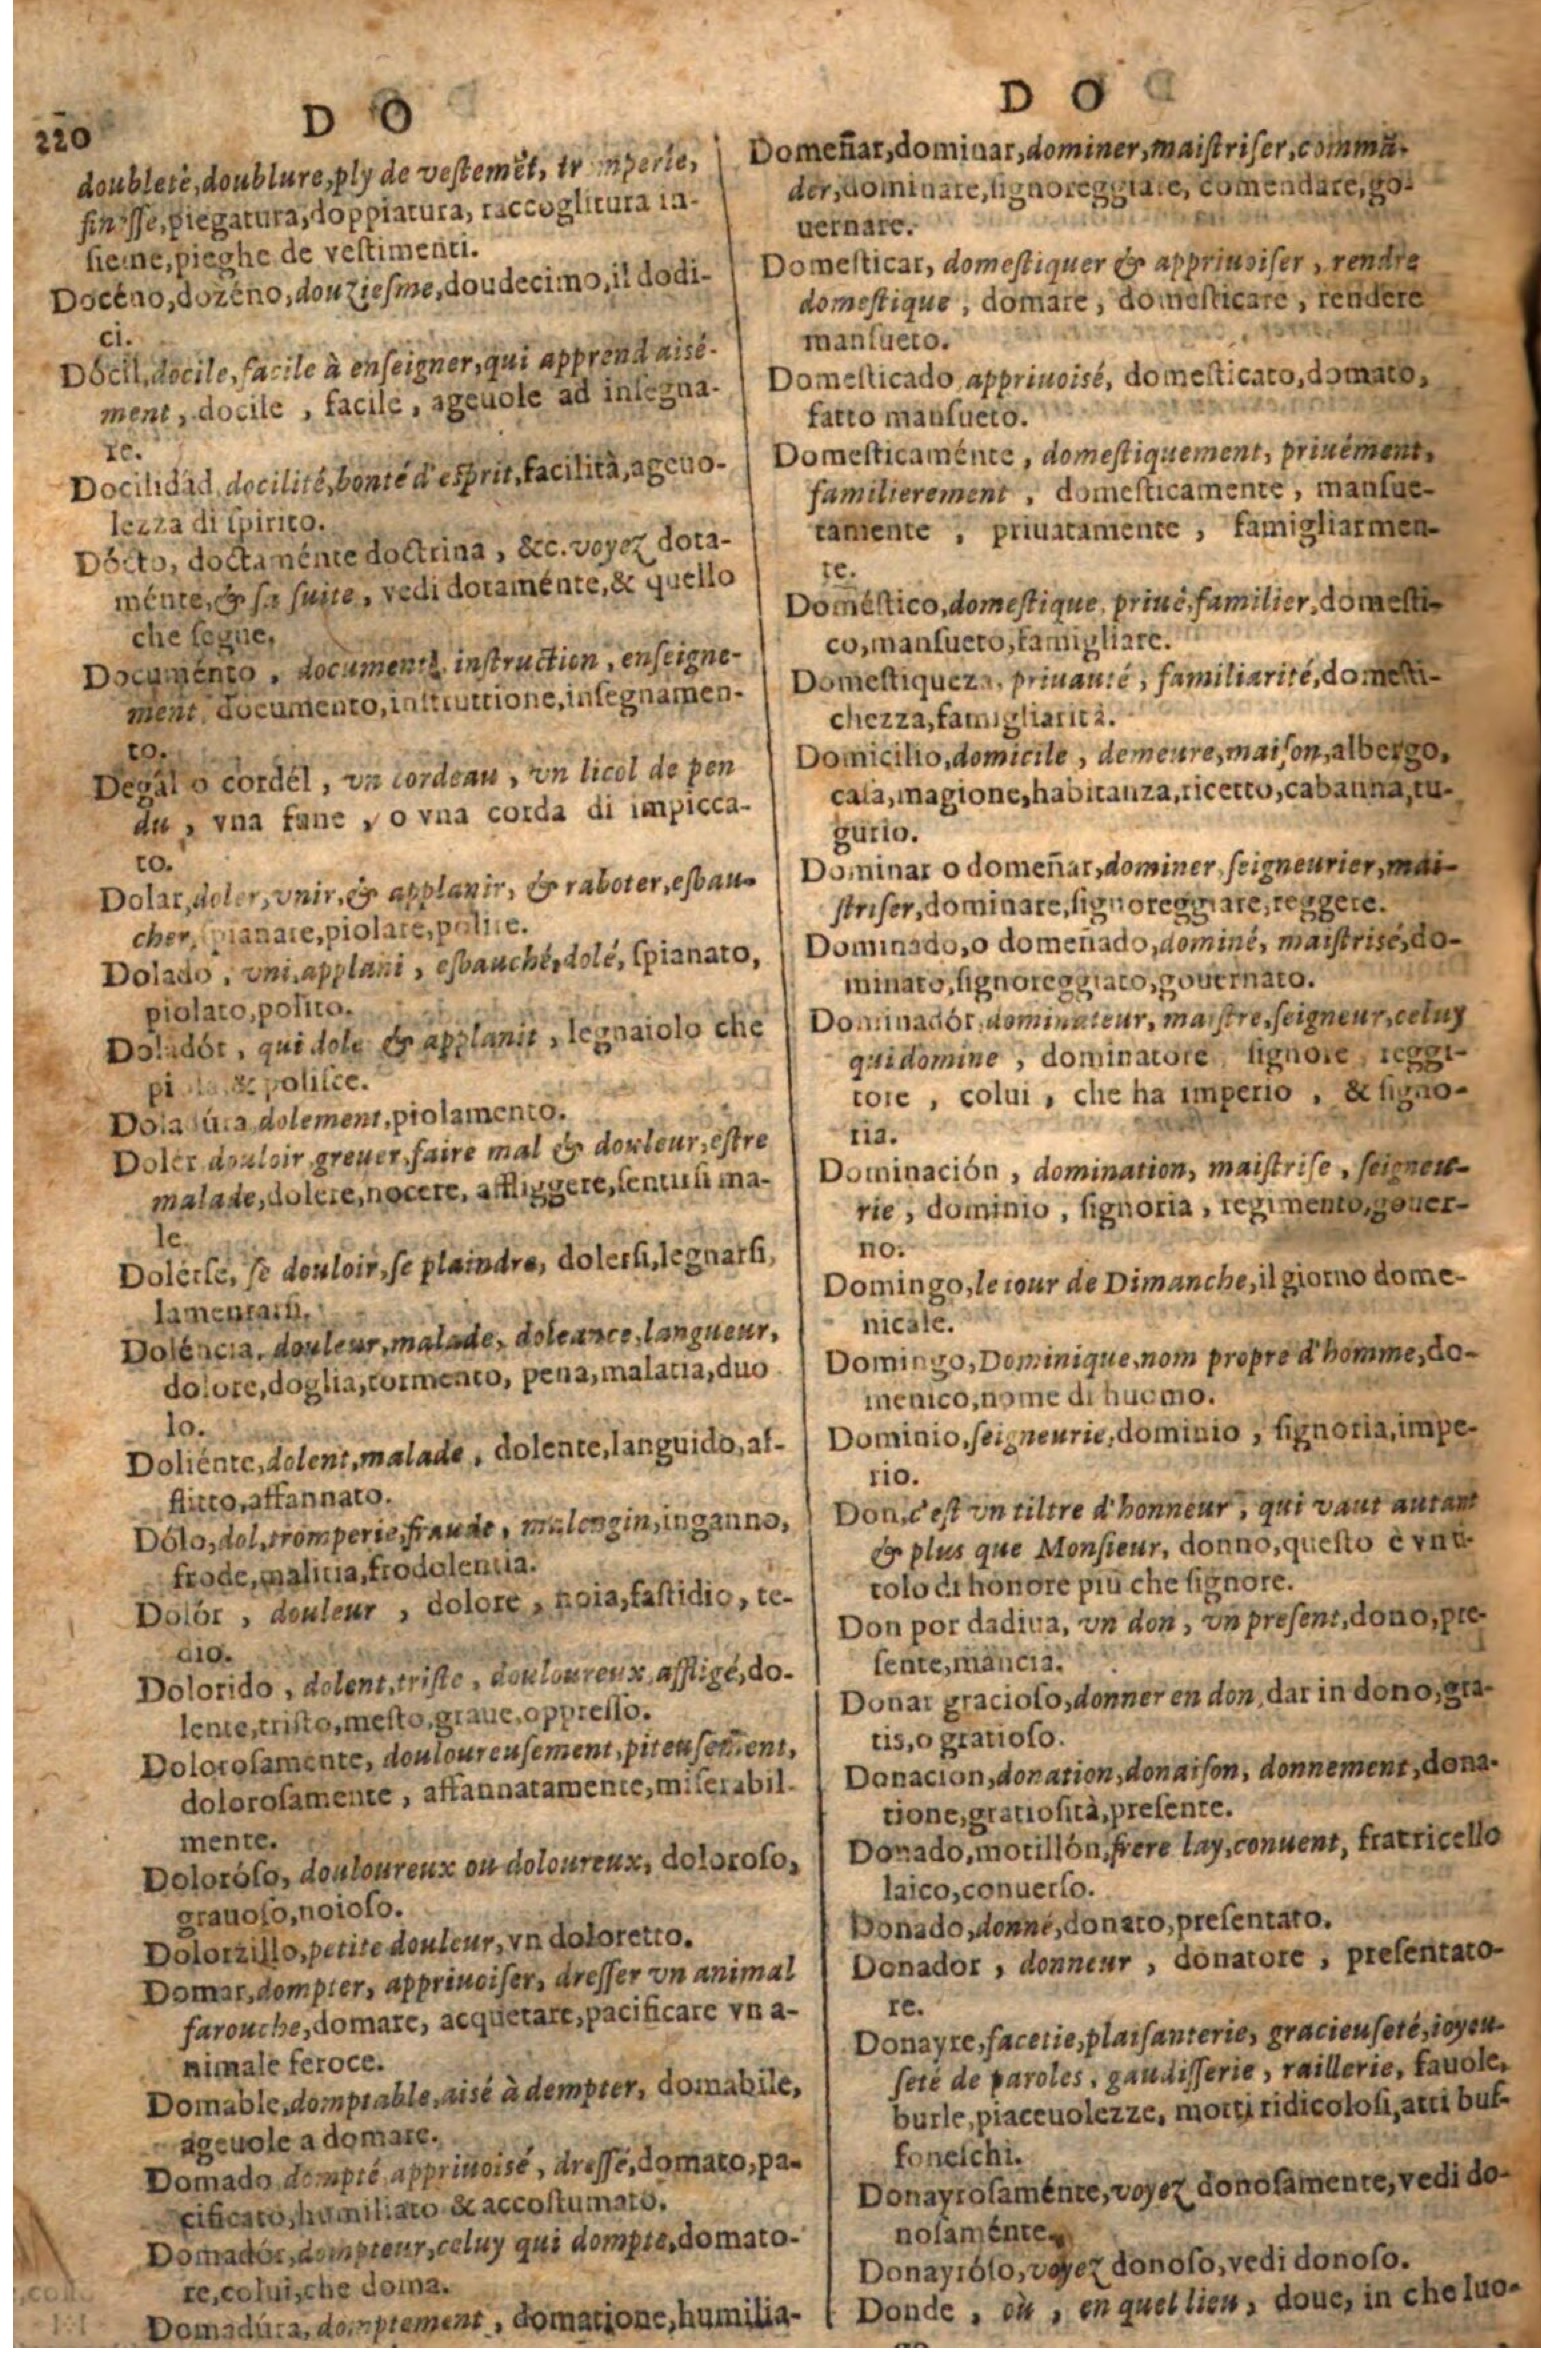 220
D O
doubleté,doublure,ply de veſtemẽt, tromperie,
fineſſe,piegatura,doppiatura, raccoglitura in-
ſieme,pieghe de veſtimenti.
Docéno,dozéno,douzieſme,doudecimo,il dodi-
ci.
Dócil,docile,facile à enſeigner,qui apprend aisé-
ment, docile , facile , ageuole ad inſegna-
re.
Docilidád,docilité,bonté d'eſprit,facilità,ageuo-
lezza di ſpirito.
Dócto, doctaménte doctrina, &c. voyez dota-
ménte,& ſa ſuite, vedi dotaménte,& quello
che ſegue.
Documénto , document, inſtruction, enſeigne-
ment, documento,inſtruttione,inſegnamen-
to.
Degál o cordél , vn cordeau , vn licol de pen
du , vna fune , o vna corda di impicca-
to.
Dolar,doler,vnir,& applanir, & raboter,esbau-
cher, ſpianare,piolare,polire.
Dolado , vni,applani , esbauché,dolé, ſpianato,
piolato,polito.
Doladór , qui dole & applanit , legnaiolo che
& poliſce.
Doladúra,dolement,piolamento.
Doler douloir,greuer,faire mal & douleur,eſtre
malade,dolere,nocere, affliggere,ſentirſi ma-
le.
Dolérſe, ſe douloir,ſe plaindre, dolerſi,legnarſi,
lamentarſi.
Doléncia, douleur,malade, doleance,langueur,
dolore,doglia,tormento, pena,malatia,duo
lo.
Doliénte,dolent,malade , dolente,languido,af-
flitto,affannato.
Dólo,dol,tromperie,fraude , malengin,inganno,
frode,malitia,frodolentia.
Dolór , douleur , dolore , noia,faſtidio, te-
dio.
Dolorido , dolent,triſte , douloureux,affligé,do-
lente,triſto,meſto,graue,oppreſſo.
Doloroſamente, douloureuſement,piteuſement,
doloroſamente , affannatamente,miſerabil-
mente.
Doloróſo, douloureux ou doloureux, doloroſo,
grauoſo,noioſo.
Dolorzillo,petite douleur,vn doloretto.
Domar,dompter, appriuoiſer, dreſſer vn animal
farouche,domare, acquetare,pacificare vn a-
nimale feroce.
Domable,domptable,aisé à dempter, domabile,
ageuole a domare.
Domado dompté appriuoisé , dreſſé,domato,pa-
cificato,humiliato & accoſtumato.
Domadór,dompteur,celuy qui dompte,domato-
re,colui,che doma.
Domadúra,domptement , domatione,humilia-
D O
Domeñar,dominar,dominer,maiſtriſer,commã-
der,dominare,ſignoreggiare, comendare,go-
uernare.
Domeſticar, domeſtiquer & appriuoiſer , rendre
domeſtique , domare , domeſticare , rendere
manſueto.
Domeſticado,appriuoisé, domeſticato,domato,
fatto manſueto.
Domeſticaménte , domeſtiquement, priuément,
familierement , domeſticamente , manſue-
tamente , priuatamente , famigliarmen-
te.
Doméſtico,domeſtique,priué,familier,domeſti-
co,manſueto,famigliare.
Domeſtiqueza, priuauté , familiarité,domeſti-
chezza,famigliarità.
Domicilio,domicile , demeure,maiſon,albergo,
caſa,magione,habitanza,ricetto,cabanna,tu-
gurio.
Dominar o domeñar,dominer,ſeigneurier,mai-
ſtriſer,dominare,ſignoreggiare,reggere.
Dominado,o domeñado,dominé, maiſtrisé,do-
minato,ſignoreggiato,gouernato.
Dominadór,dominateur, maiſtre,ſeigneur,celuy
qui domine , dominatore ſignore reggi-
tore , colui , che ha imperio , & ſigno-
ria.
Dominación , domination, maiſtriſe , ſeigneu-
rie , dominio , ſignoria , regimento,gouer-
no.
Domingo,le iour de Dimanche,il giorno dome-
nicale.
Domingo,Dominique,nom propre d'homme,do-
menico,nome di huomo.
Dominio,ſeigneurie,dominio , ſignoria,impe-
rio.
Don,c'eſt vn tiltre d'honneur, qui vaut autant
& plus que Monſieur, donno,queſto è vn ti-
tolo di honore più che ſignore.
Don por dadiua, vn don , vn preſent,dono,pre-
ſente,mancia.
Donar gracioſo,donner en don,dar in dono,gra-
tis,o gratioſo.
Donacion,donation,donaiſon, donnement,dona-
tione,gratioſità,preſente.
Donado,motillón,frere lay,conuent, fratricello
laico,conuerſo.
Donado,donné,donato,preſentato.
Donador , donneur , donatore , preſentato-
re.
Donayre,facetie,plaiſanterie, gracieuſeté,ioyeu-
ſeté de paroles, gaudiſſerie , raillerie, fauole,
burle,piaceuolezze, motti ridicoloſi,atti buf-
foneſchi.
Donayroſaménte,voyez donoſamente,vedi do-
noſaménte.
Donayróſo,voyez donoſo,vedi donoſo.
Donde , où , en quel lieu , doue, in che luo-